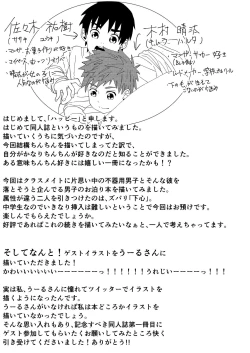 佐々木 祐樹
(ササキ ユウキ)
木村 晴汰
はじめまして、「ハッピー」と申します。
はじめて同人誌というものを描いてみました。
描いていくうちに気づいたのですが、
今回結構ちんちんを描いてしまってた訳で、
自分がかなりちんちんが好きなのだと知ることができました。
ある意味ちんちん好きには嬉しい一冊になったかも！？
今回はクラスメイトに片思い中の不器用男子とそんな彼を
落とそうと企んでる男子のお泊り本を描いてみました。
属性が違う二人を引きつけたのは、ズバリ「下心」。
中学生なのでいきなり挿入は難しいということで今回はお預けです。
楽しんでもらえたでしょうか。
好評であればこの続きを描いてみたいなぁと、一人で考えちゃってます。
そしてなんと！ゲストイラストをうーるさんに
描いていただきました！
かわいいいいいいーーーーーっ！！！！！うれじいーーーーっ！！！
実は私、うーるさんに憧れてツイッターでイラストを
描くようになったんです。
うーるさんがいなければ私は本どころかイラストを
描いていなかったでしょう。
そんな思い入れもあり、記念すべき同人誌第一冊目に
ゲスト参加してもらいたくお願いしてみたところ快く
引き受けてくださいました！ありがとう!!